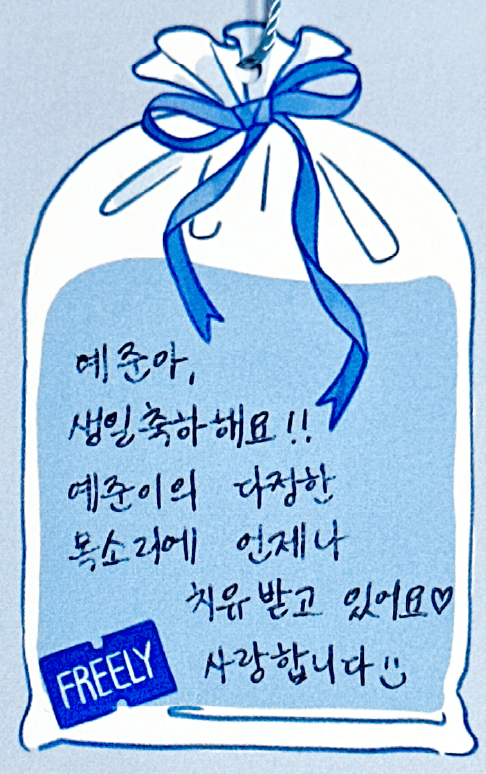 예준아,
생일축하해요!!
예준이의 다정한
목소리에 언제나
치유 받고 있어요♡
사랑합니다
FREELY